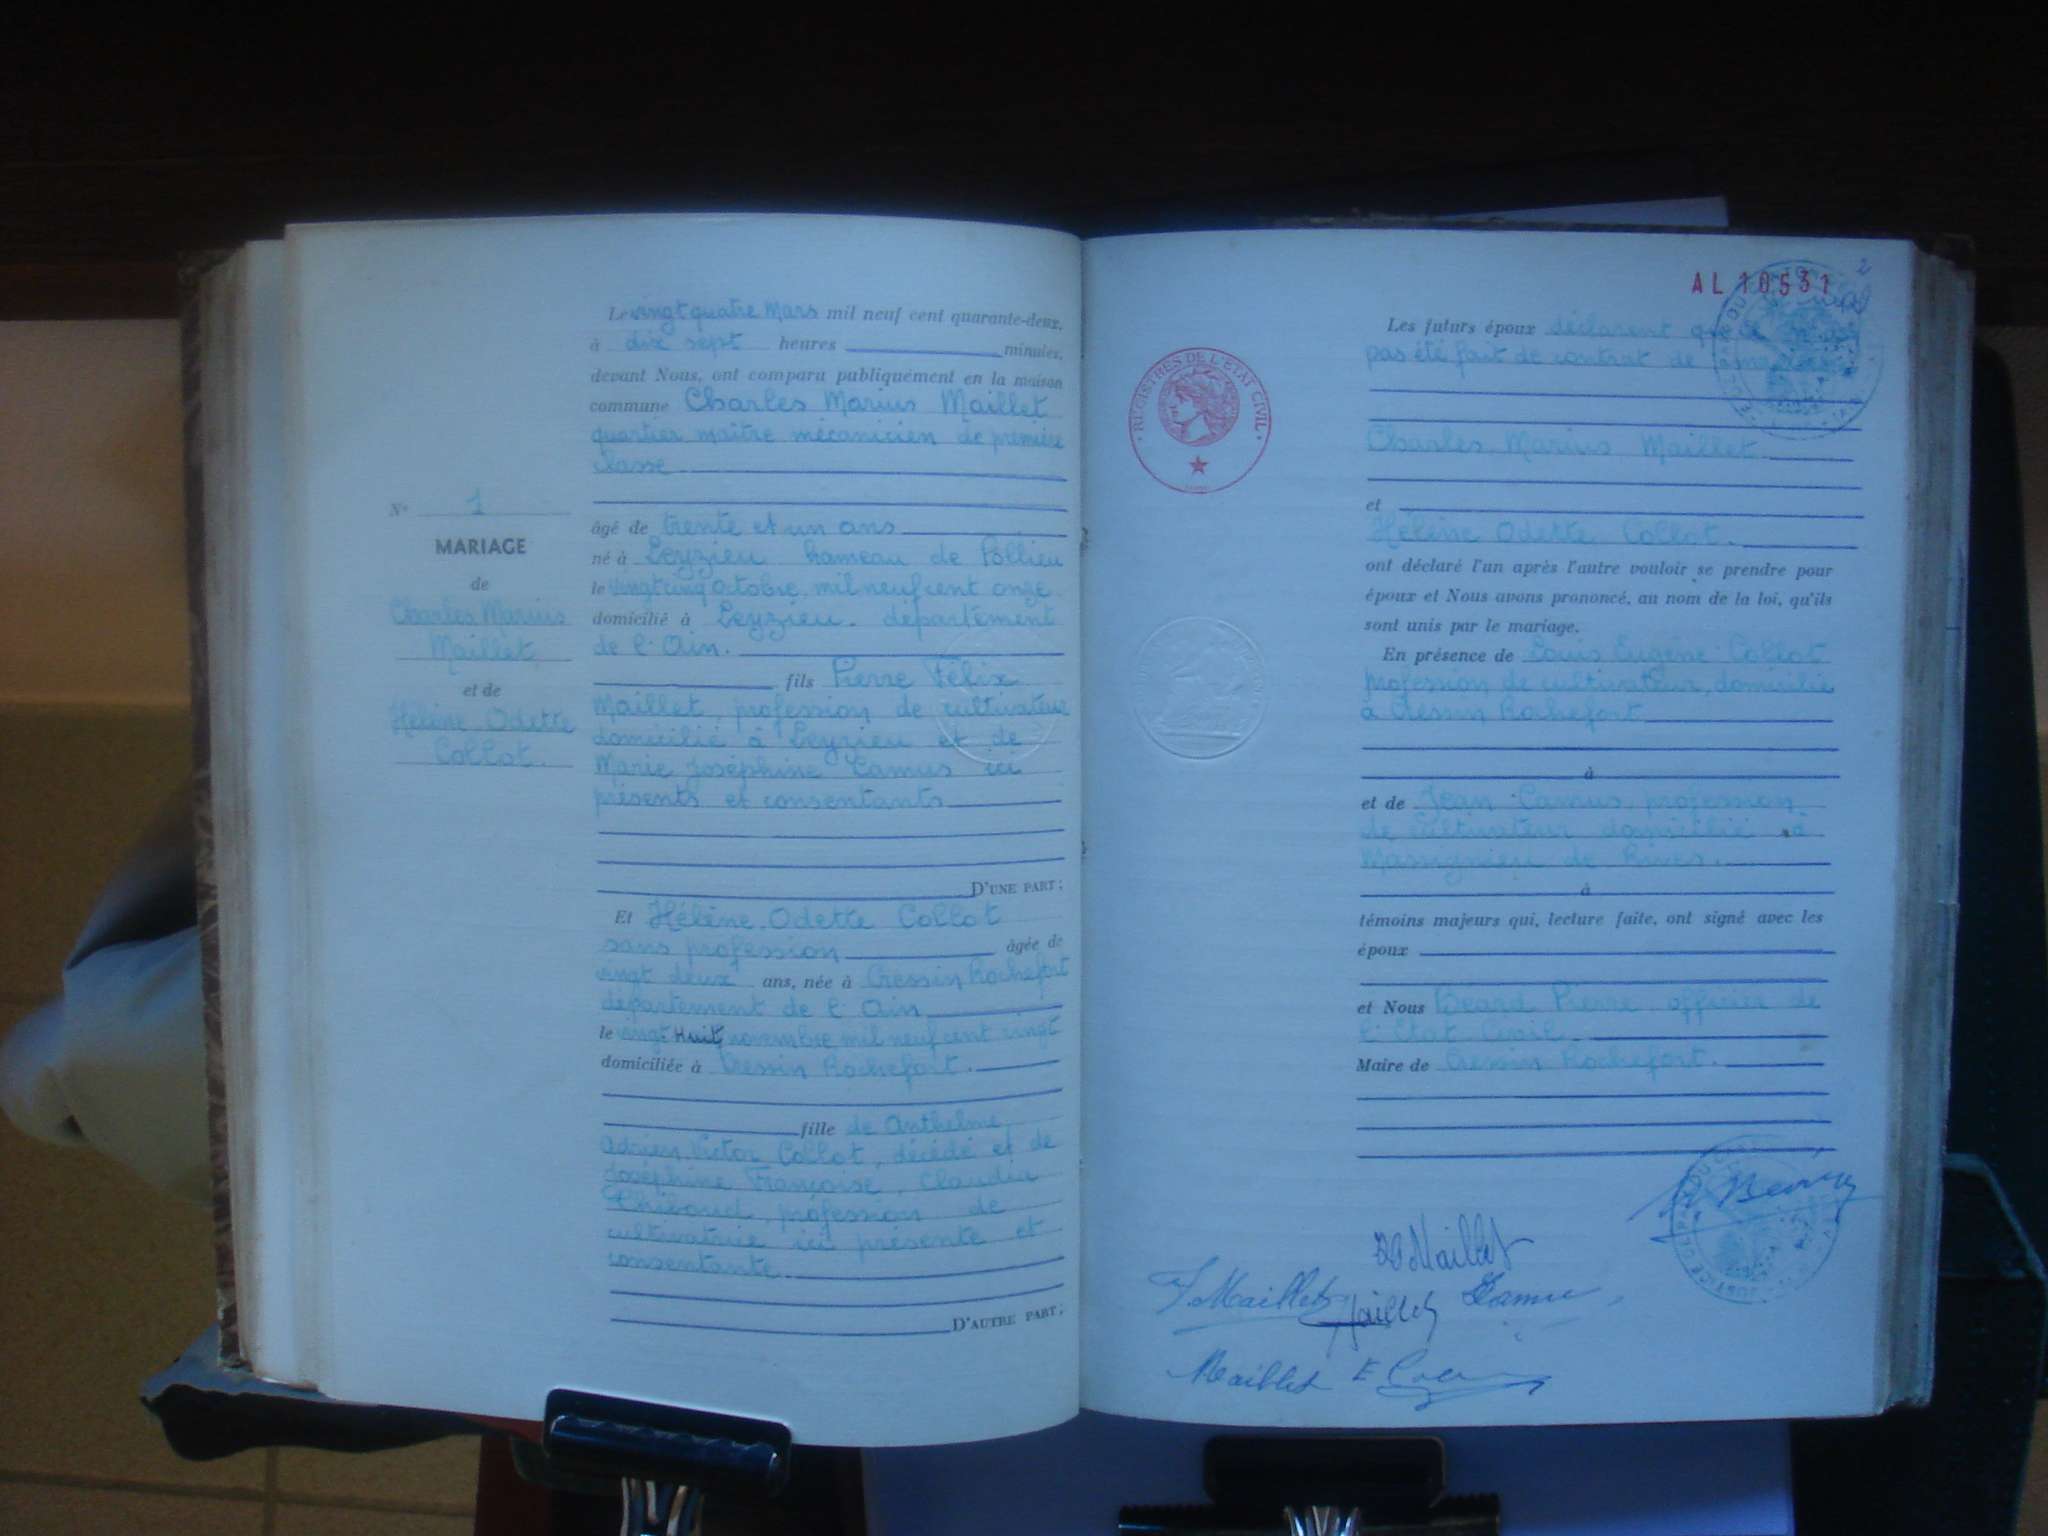 N° 1
MARIAGE
de
Charles Marius
Maillet
et de
Hélène Odette
Collot.
Le vingt quatre Mars mil neuf cent quarante-deux,
à dix sept heures minutes,
devant Nous, ont comparu publiquement en la maison
commune Charles Marius Maillet
quartier maître mécanicien de première
classe
âgé de trente et un ans
né à Leyzieu hameau de Pollieu
le vingt cinq octobre mil neuf cent onze
domicilié à Leyzieu. département
de l'Ain.
fils Pierre Félix
Maillet, profession de cultivateur
domicilié à Leyzieu et de
Marie Joséphine Camus ici
présents et consentants
D'UNE PART;
Et Hélène Odette Collot
sans profession âgée de
vingt deux ans, née à Cressin Rochefort
département de l'Ain
le vingt huit novembre mil neuf cent vingt
domiciliée à Cressin Rochefort.
fille de Anthelme
Adrien Victor Collot, décédé et de
Joséphine Françoise, Claudia
Thibaud, profession de
cultivatrice ici présente et
consentante
D'AUTRE PART;
AL 10531
2
REGISTRES DE L'ETAT CIVIL
Les futurs époux déclarent que il n'a
pas été fait de contrat de mariage
Charles Marius Maillet
et
Hélène Odette Collot.
ont déclaré l'un après l'autre vouloir se prendre pour
époux et Nous avons prononcé, au nom de la loi, qu'ils
sont unis par le mariage.
En présence de Louis Eugène Collot
profession de cultivateur, domicilié
à Cressin Rochefort
à
et de Jean Camus, profession
de cultivateur domicilié à
Massignieu de Rives.
à
témoins majeurs qui, lecture faite, ont signé avec les
époux
et Nous Béard Pierre officier de
l'Etat Civil
Maire de Cressin Rochefort.
Maillet
Maillet Camus
Maillet
Maillet E